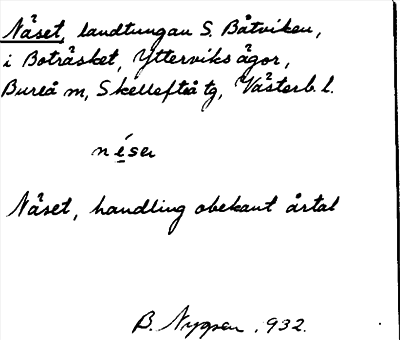 Näset, landtungan S. Båtviken,
i Boträsket, Ytterviks ägor,
Bureå m, Skellefteå tg, Västerb. l.
néser
Näset, handling obekant årtal
B. Nygren 1932.